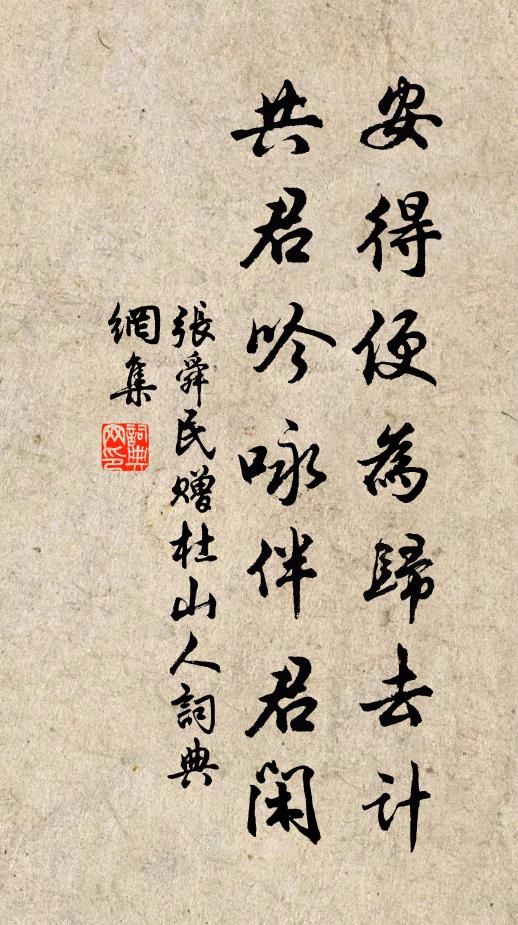 安得便為歸去計
共君吟咏伴君閑
張舜民贈杜山人詞典
網集
詞典
網印